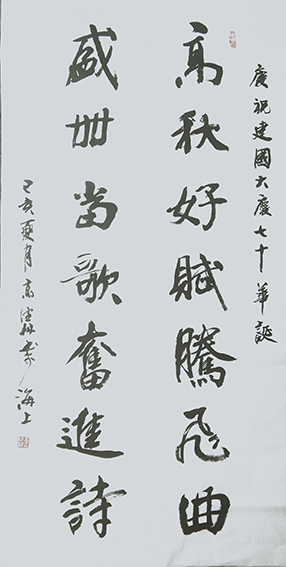 慶祝建國大慶七十華誕
高秋好賦騰飛曲
盛世当歌奮進詩
己亥夏月高書於海上